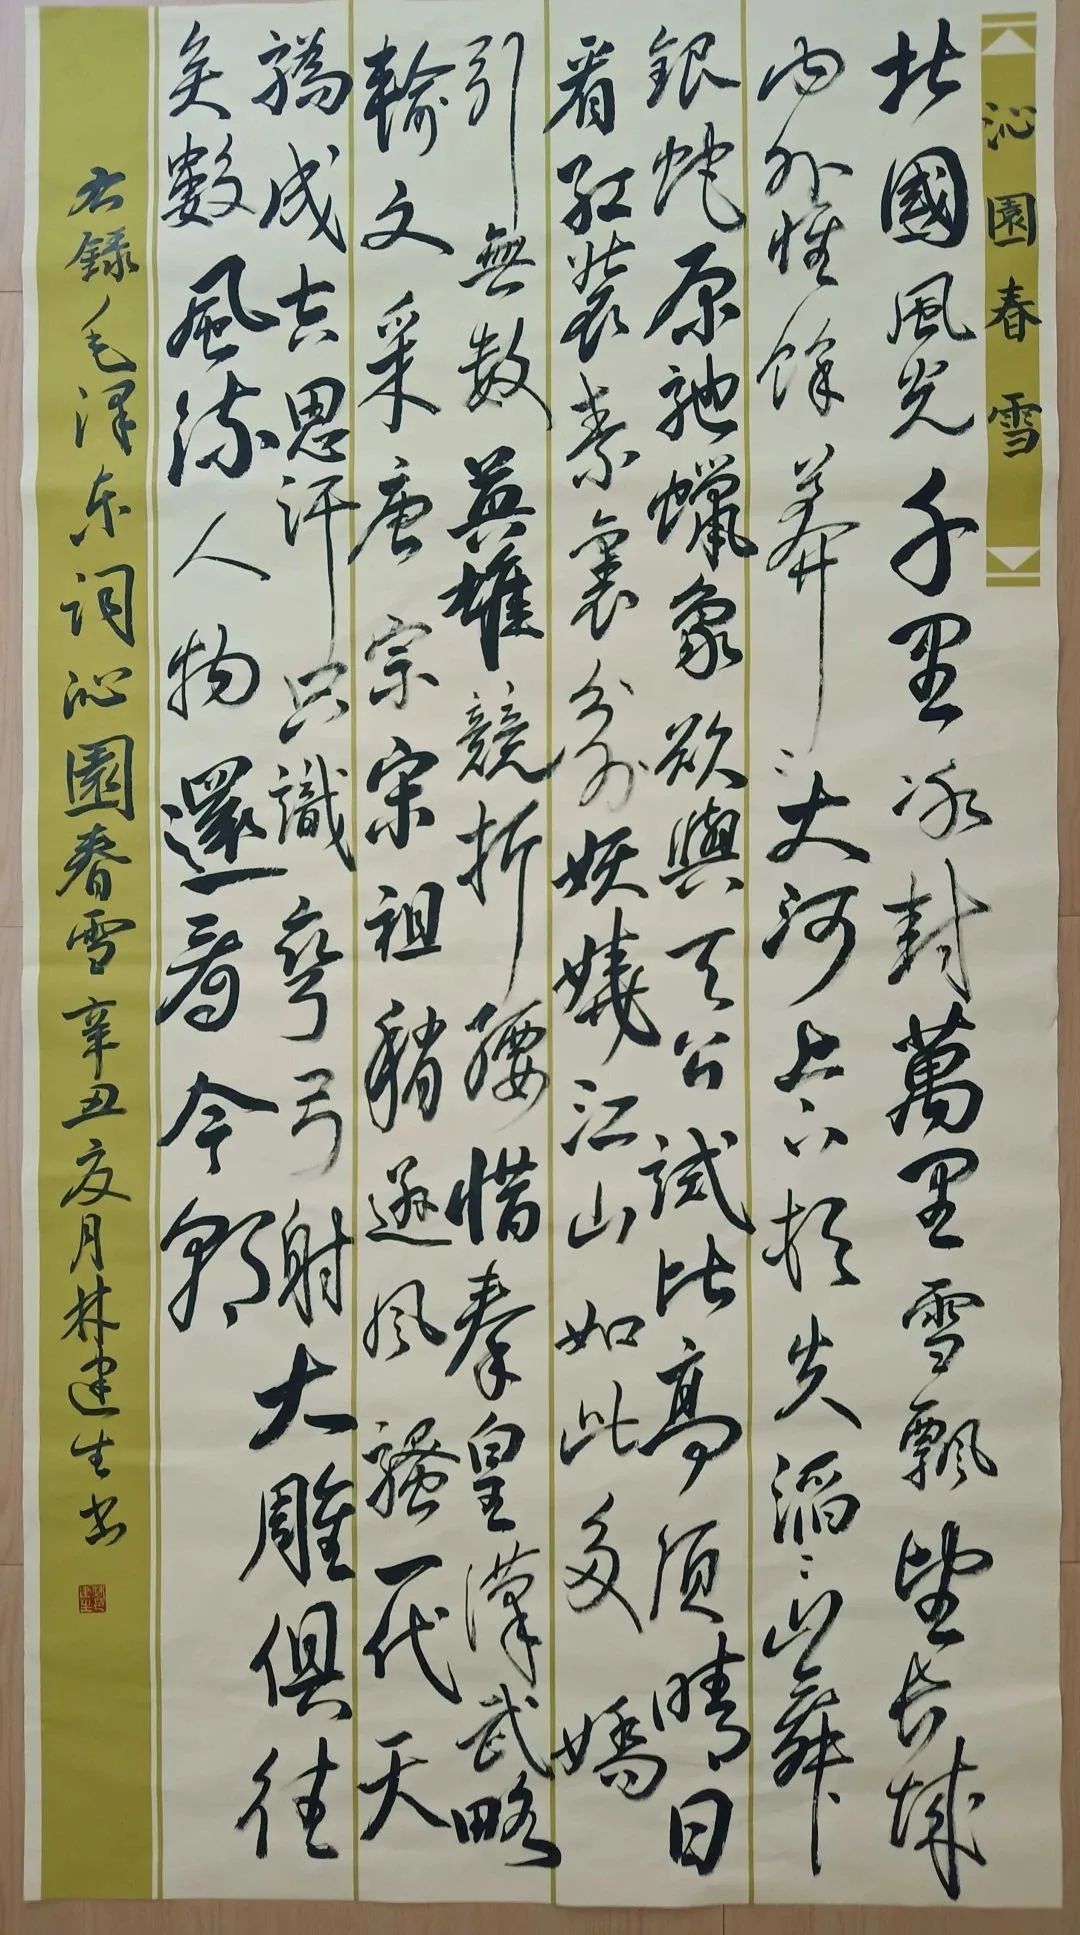 沁園春雪
北國風光千里冰封萬里雪飄望长城
内外惟餘莽〻大河上下頓失滔〻山舞
銀蛇原馳蠟象欲與天公試比高須晴日
看紅裝素裹分外妖嬈江山如此多嬌
引無數英雄競折腰惜秦皇漢武略
輸文采唐宗宋祖稍遜風騷一代天
驕成吉思汗只識彎弓射大雕俱往
矣數風流人物還看今朝
右録毛澤东词沁園春雪辛丑夏月林建生书